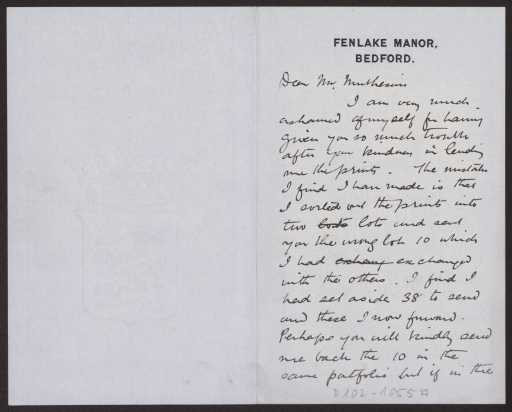 FENLAKE MANOR,
BEDFORD.
Dear Mr. Muthesius
I am very much
ashamed of myself for having
given you so much trouble
after your kindness in lending
me the prints. The mistake
I find I have made is that
I sorted out the prints into
two lots lots and sent
you the wrong lot 10 which
I had exchanged
with the others. I find I
had set aside 38 to send
and these I now forward.
Perhaps you will kindly send
me back the 10 in the
same portfolio but if in the
D102-1055